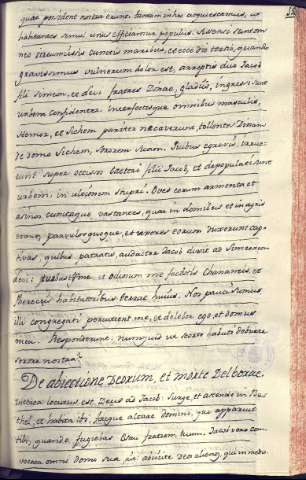 quae possident nostra erunt: tantum in hoc acquiescamus, et
habitantes simul unus efficiamur populus. Assensi sunt om
nes circumcisis cunctis maribus, et ecce die tertio, quando
gravissimus vulnerum dolor est, arreptis duo Jacob
filii Simeon, et Levi fratres Dinae, gladiis, ingressi sunt
urbem confidenter: interfectisque omnibus masculis,
Hemor, et Sichem pariter necaverunt, tollentes Dinam
de domo Sichem, sororem suam. Quibus egressis, irrue-
runt super occisos caeteri filii Jacob, et depopulati sunt
urbem, in ultionem stupri. Oves eorum armenta et
asinos cunctaque vastantes, quae in domibus et in agris
erant, parvulos quoque, et uxores eorum duxerunt cap
tivas, quibus patratis, audacter Jacob dixit ad Simeon et
Levi: turbastis me, et odiosum me fecistis Chananeis, et
Pherezeis habitatoribus terrae hujus. Nos pauci sumus
illi congregati percutient me, et delebor ego et domus
mea. Responderunt: numquid ut scorto abuti debuere
sorore nostra?
De abjectione Deorum, et morte Delborae.
Interea locutus est Deus ad Jacob: Surge, et ascende in Be
thel, et habita ibi, facque altare Domino, qui apparuit
tibi, quando fugiebas Esau fratrem tuum. Jacob vero con
vocata omni domo sua ait: abiicite deos alienos, qui in medio